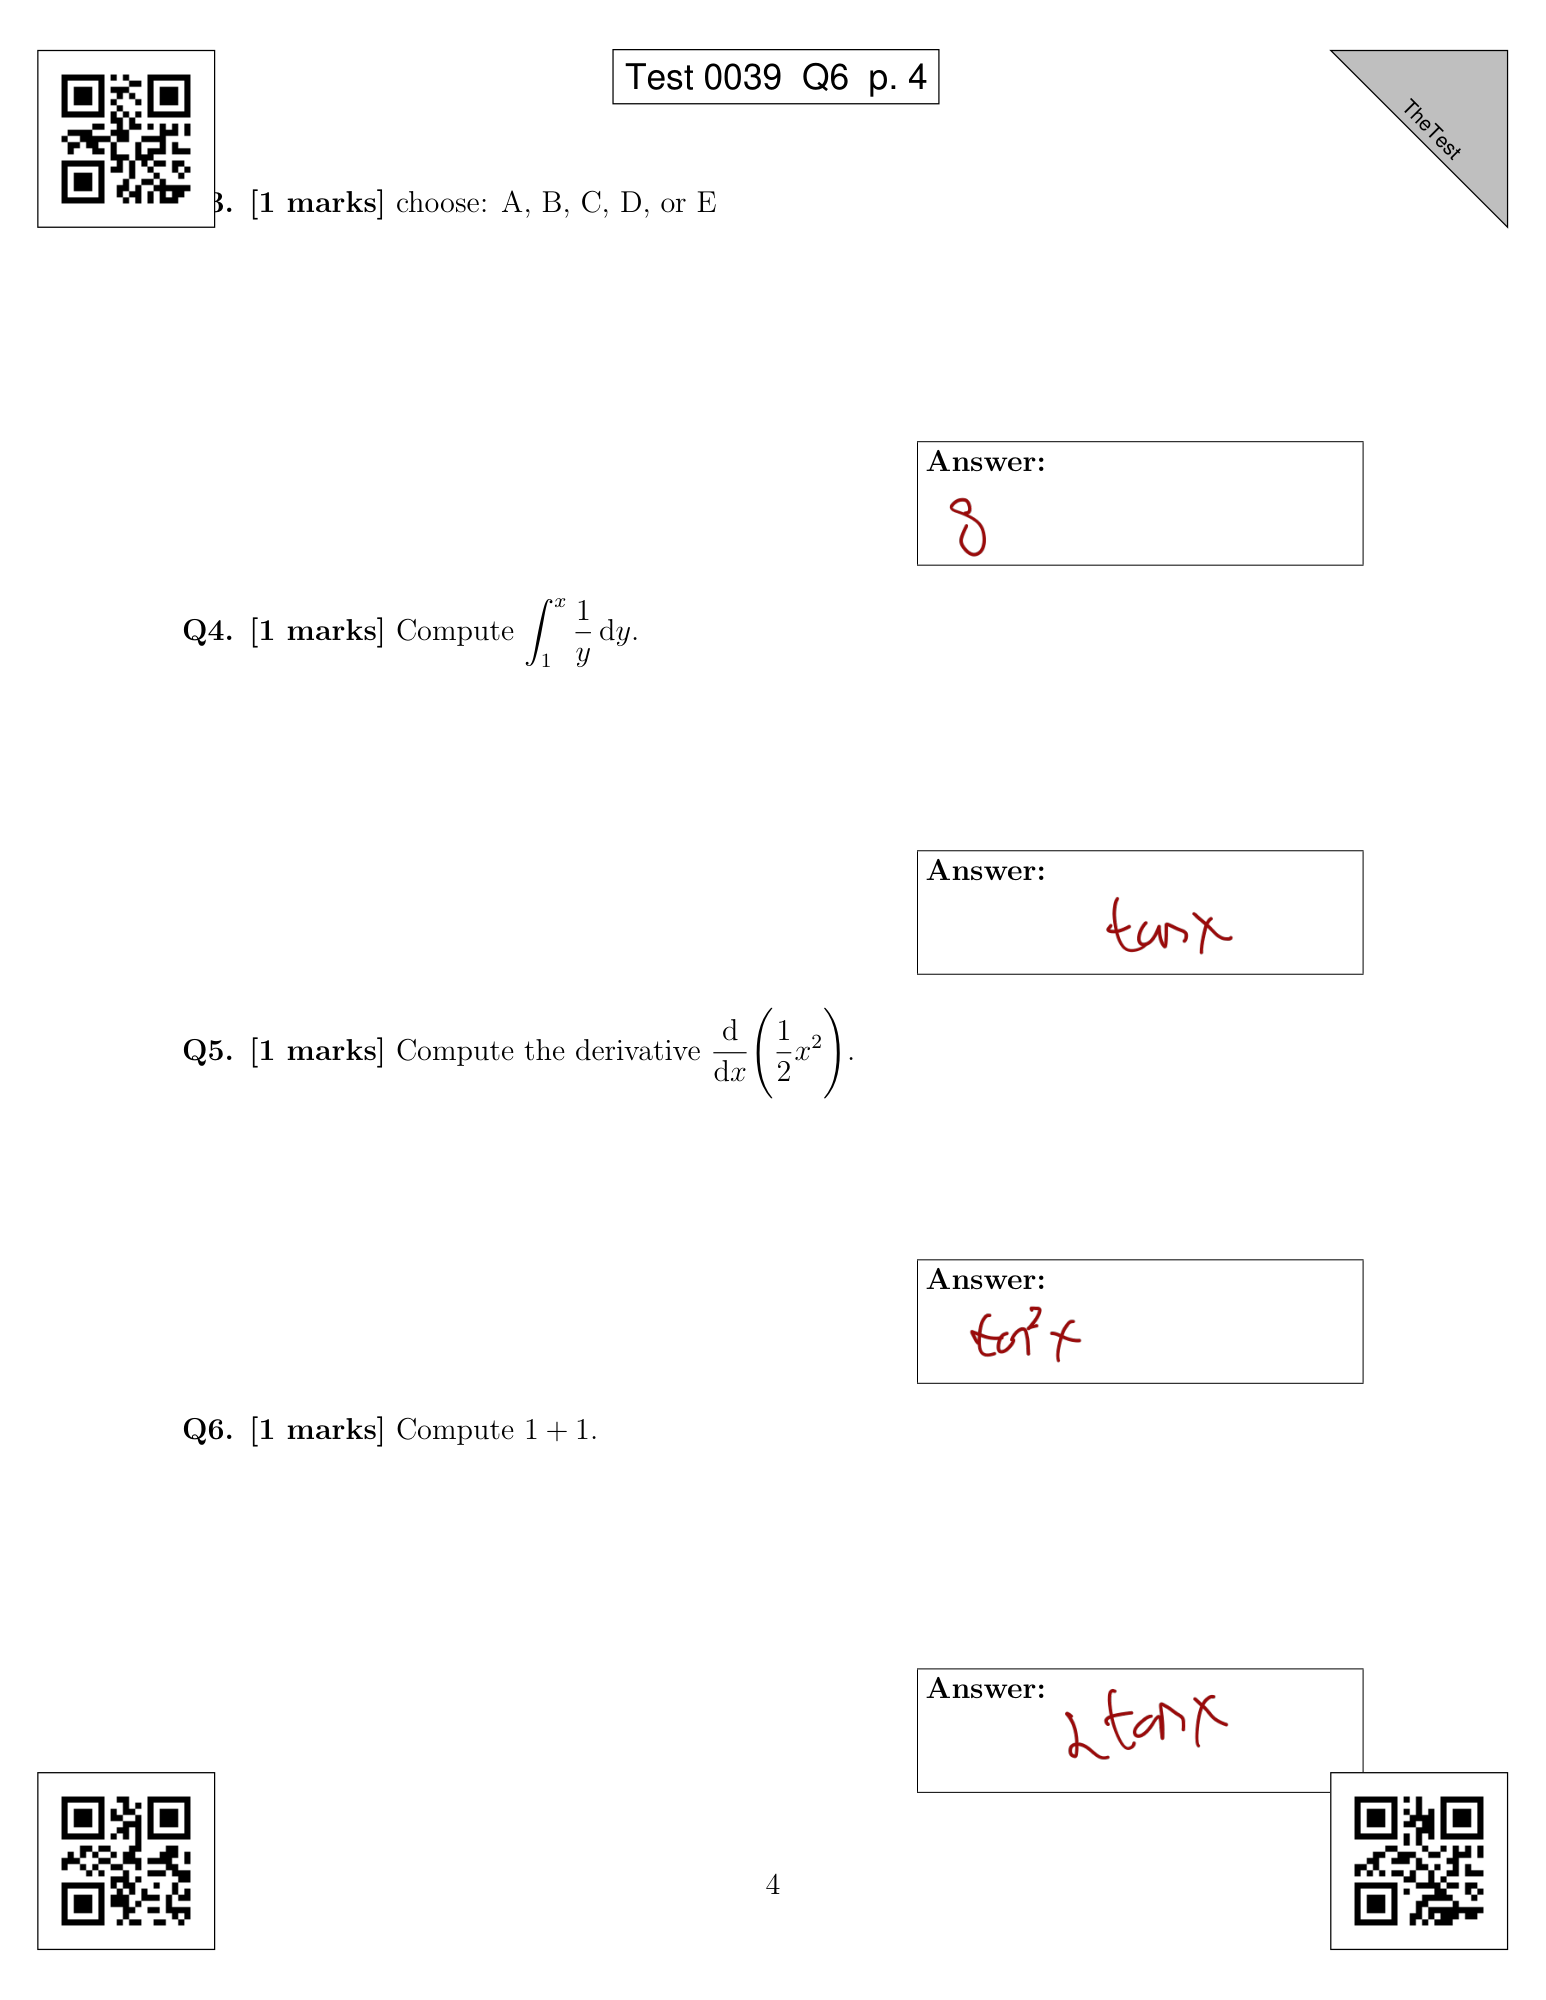 Test 0039 Q6 p. 4
TheTest
3. [1 marks] choose: A, B, C, D, or E
Answer:
8
Q4. [1 marks] Compute ∫₁ˣ 1/y dy.
Answer:
tan x
Q5. [1 marks] Compute the derivative d/dx(1/2 x²).
Answer:
tan² x
Q6. [1 marks] Compute 1 + 1.
Answer:
2 tan x
4